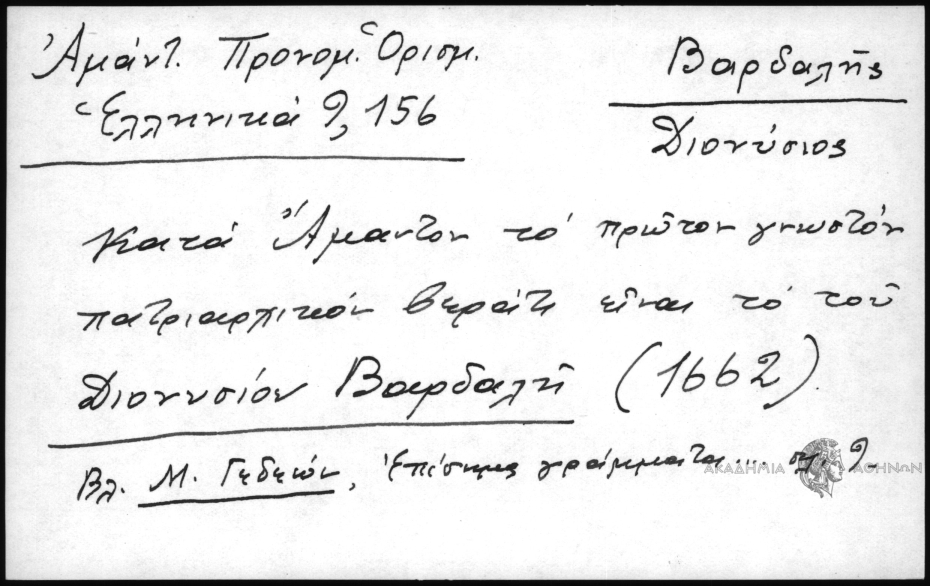 Ἀμάντ. Προνομ. Ὁρισμ.
Ἑλληνικά 9, 156
Βαρδαλῆς
Διονύσιος
Κατά Ἄμαντον τό πρῶτον γνωστόν
πατριαρχικόν βεράτι εἶναι τό τοῦ
Διονυσίου Βαρδαλῆ (1662).
Βλ. Μ. Γεδεών, Ἐπίσημα γράμματα... σελ. 9.
ΑΚΑΔΗΜΙΑ ΑΘΗΝΩΝ